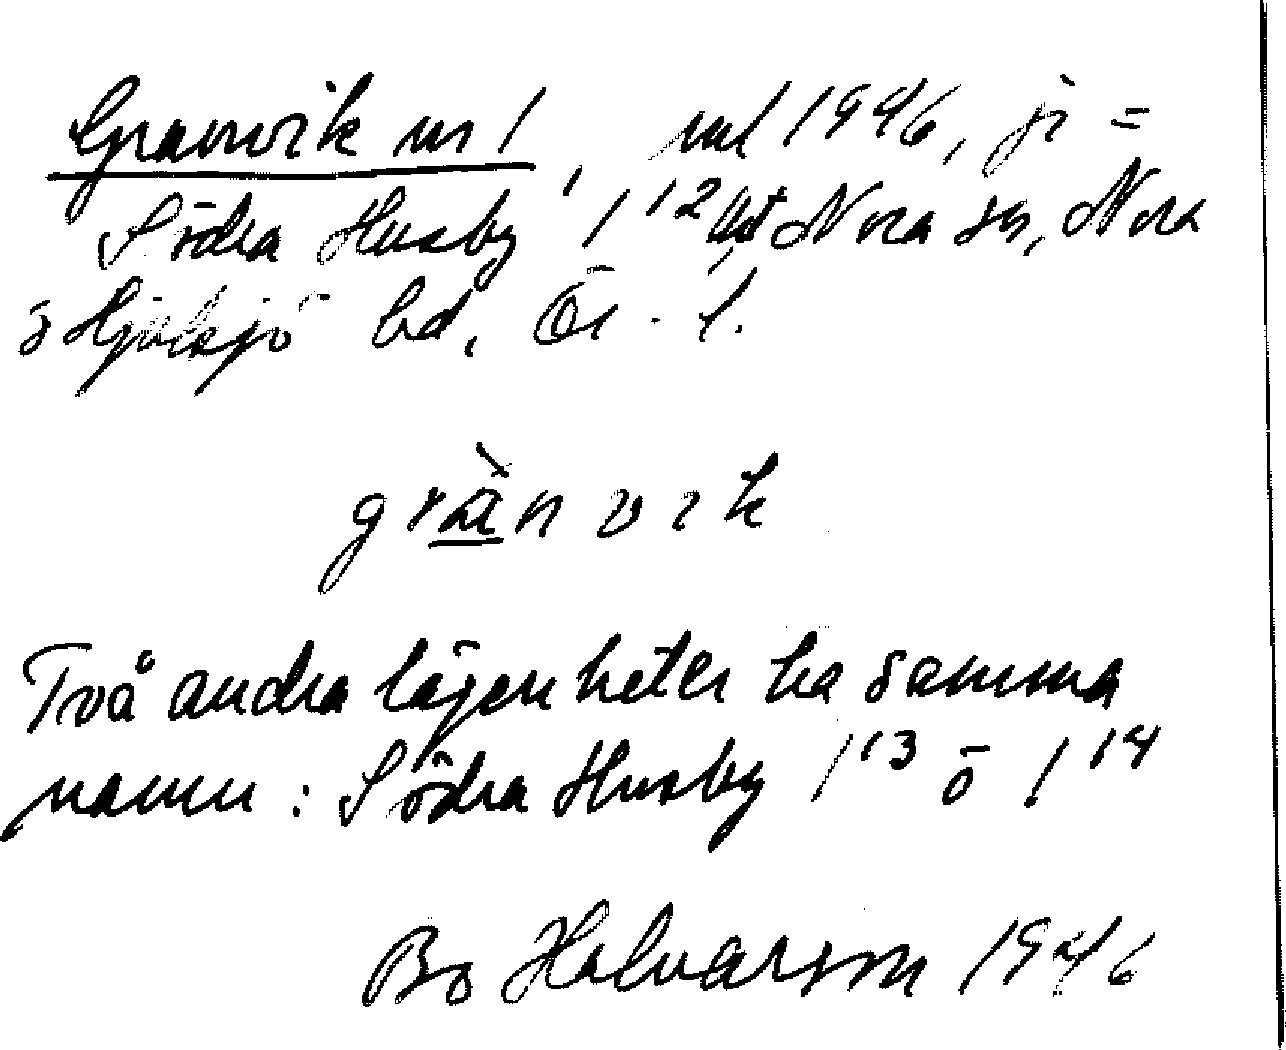 Granvik nr 1, uul 1946, ji =
Södra Husby 1¹² Nora sn, Nora
o Hjulsjö bd, Ör. l.
grànvik
Två andra lägenheter ha samma
namn: Södra Husby 1¹³ o 1¹⁴
Bo Halvarson 1946